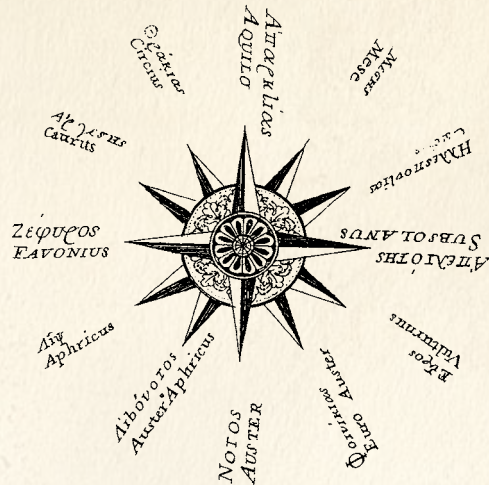 Ἀπαρκλίας
AQUILO
Μέσης
Mese
Ἑλλησποντίας
SUBSOLANUS
ἈΠΕΛΙΏΤΗΣ
Εὖρος
Vulturnus
Φοινικίας
Euro Auster
NOTOS
AUSTER
Λιβόνοτος
Austero Aphricus
Λίψ
Aphricus
Ζέφυρος
FAVONIUS
Ἀργέστης
Caurus
Θρᾳκίας
Circius